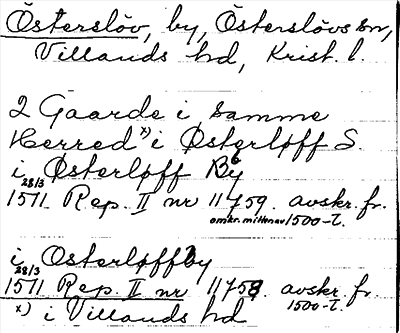 Österslöv, by, Österslövs sn,
Villands hd, Krist. l.
2 Gaarde i samme
Herred x) i Østerløff S.
i Østerløff By
28/3
1571 Rep. II nr 11759. avskr. fr.
omkr. mitten av 1500-t.
i Osterløffby
28/3
1571 Rep. II nr 11758. avskr. fr
1500-t.
x) i Villands hd